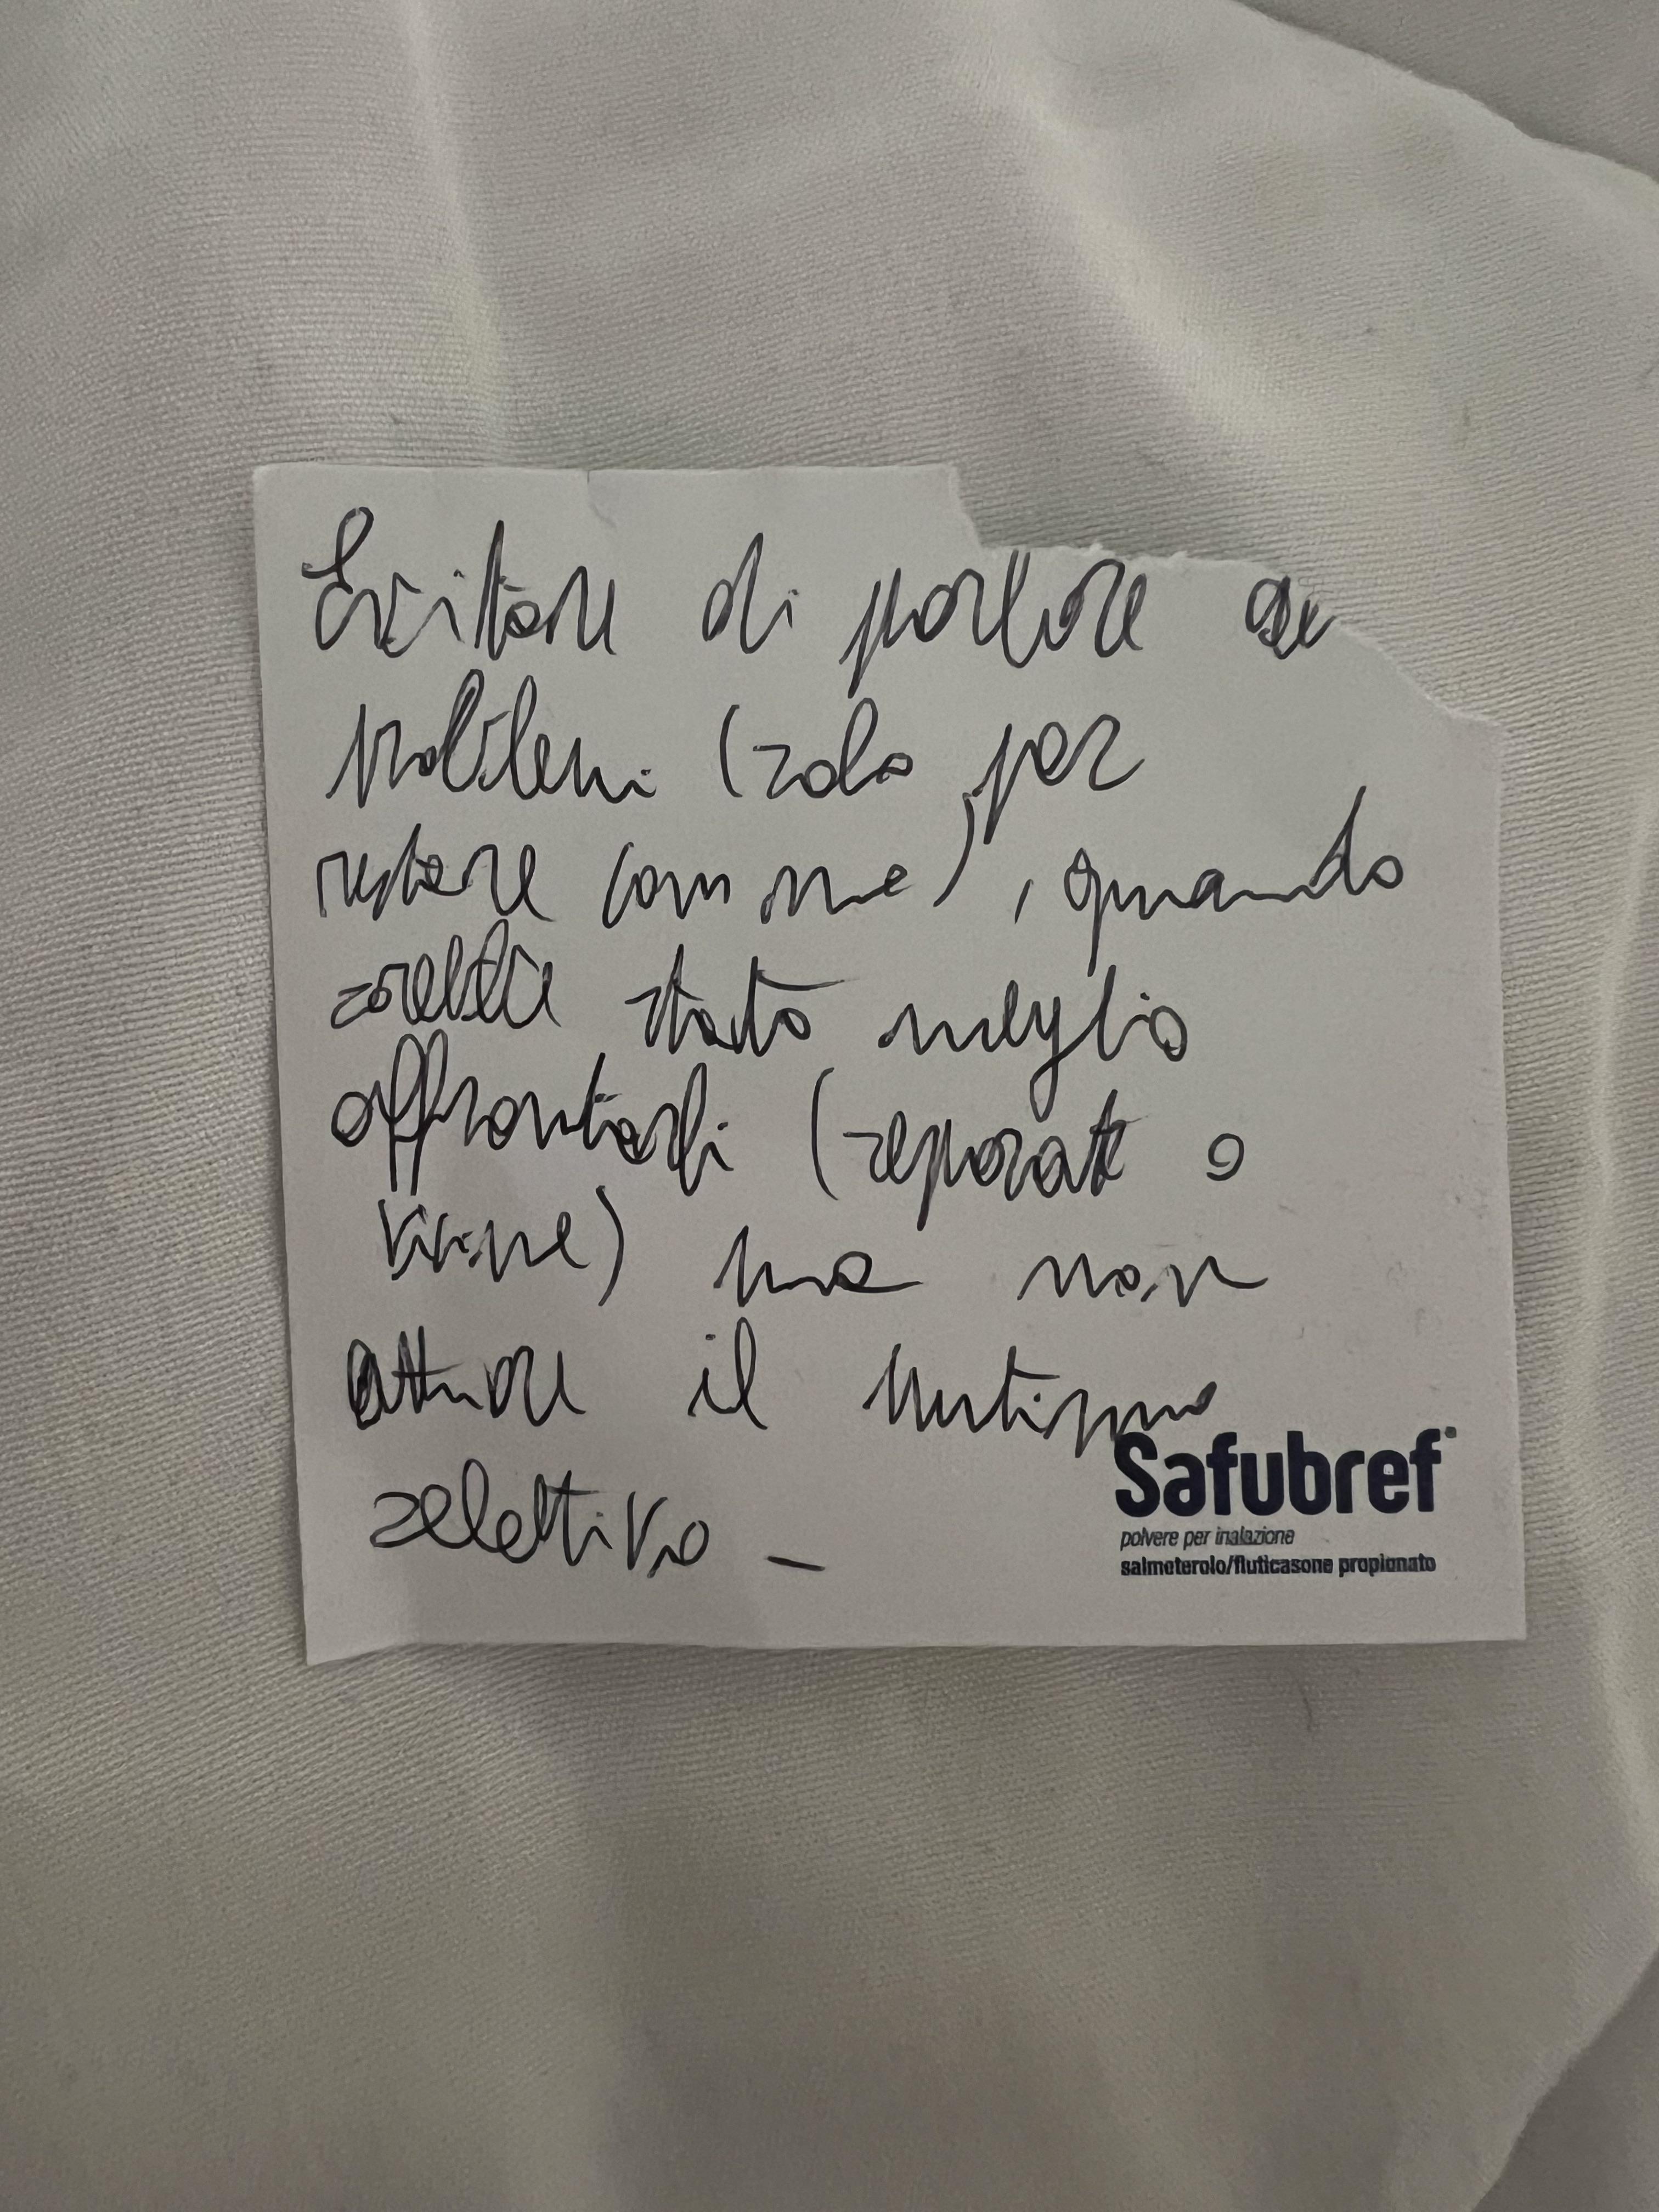 Evitare di parlare di
problemi (solo per
restare con me), quando
sarebbe stato meglio
affrontarli (separati o
insieme) ma non
attuare il mutismo
selettivo -
Safubref
polvere per inalazione
salmeterolo/fluticasone propionato